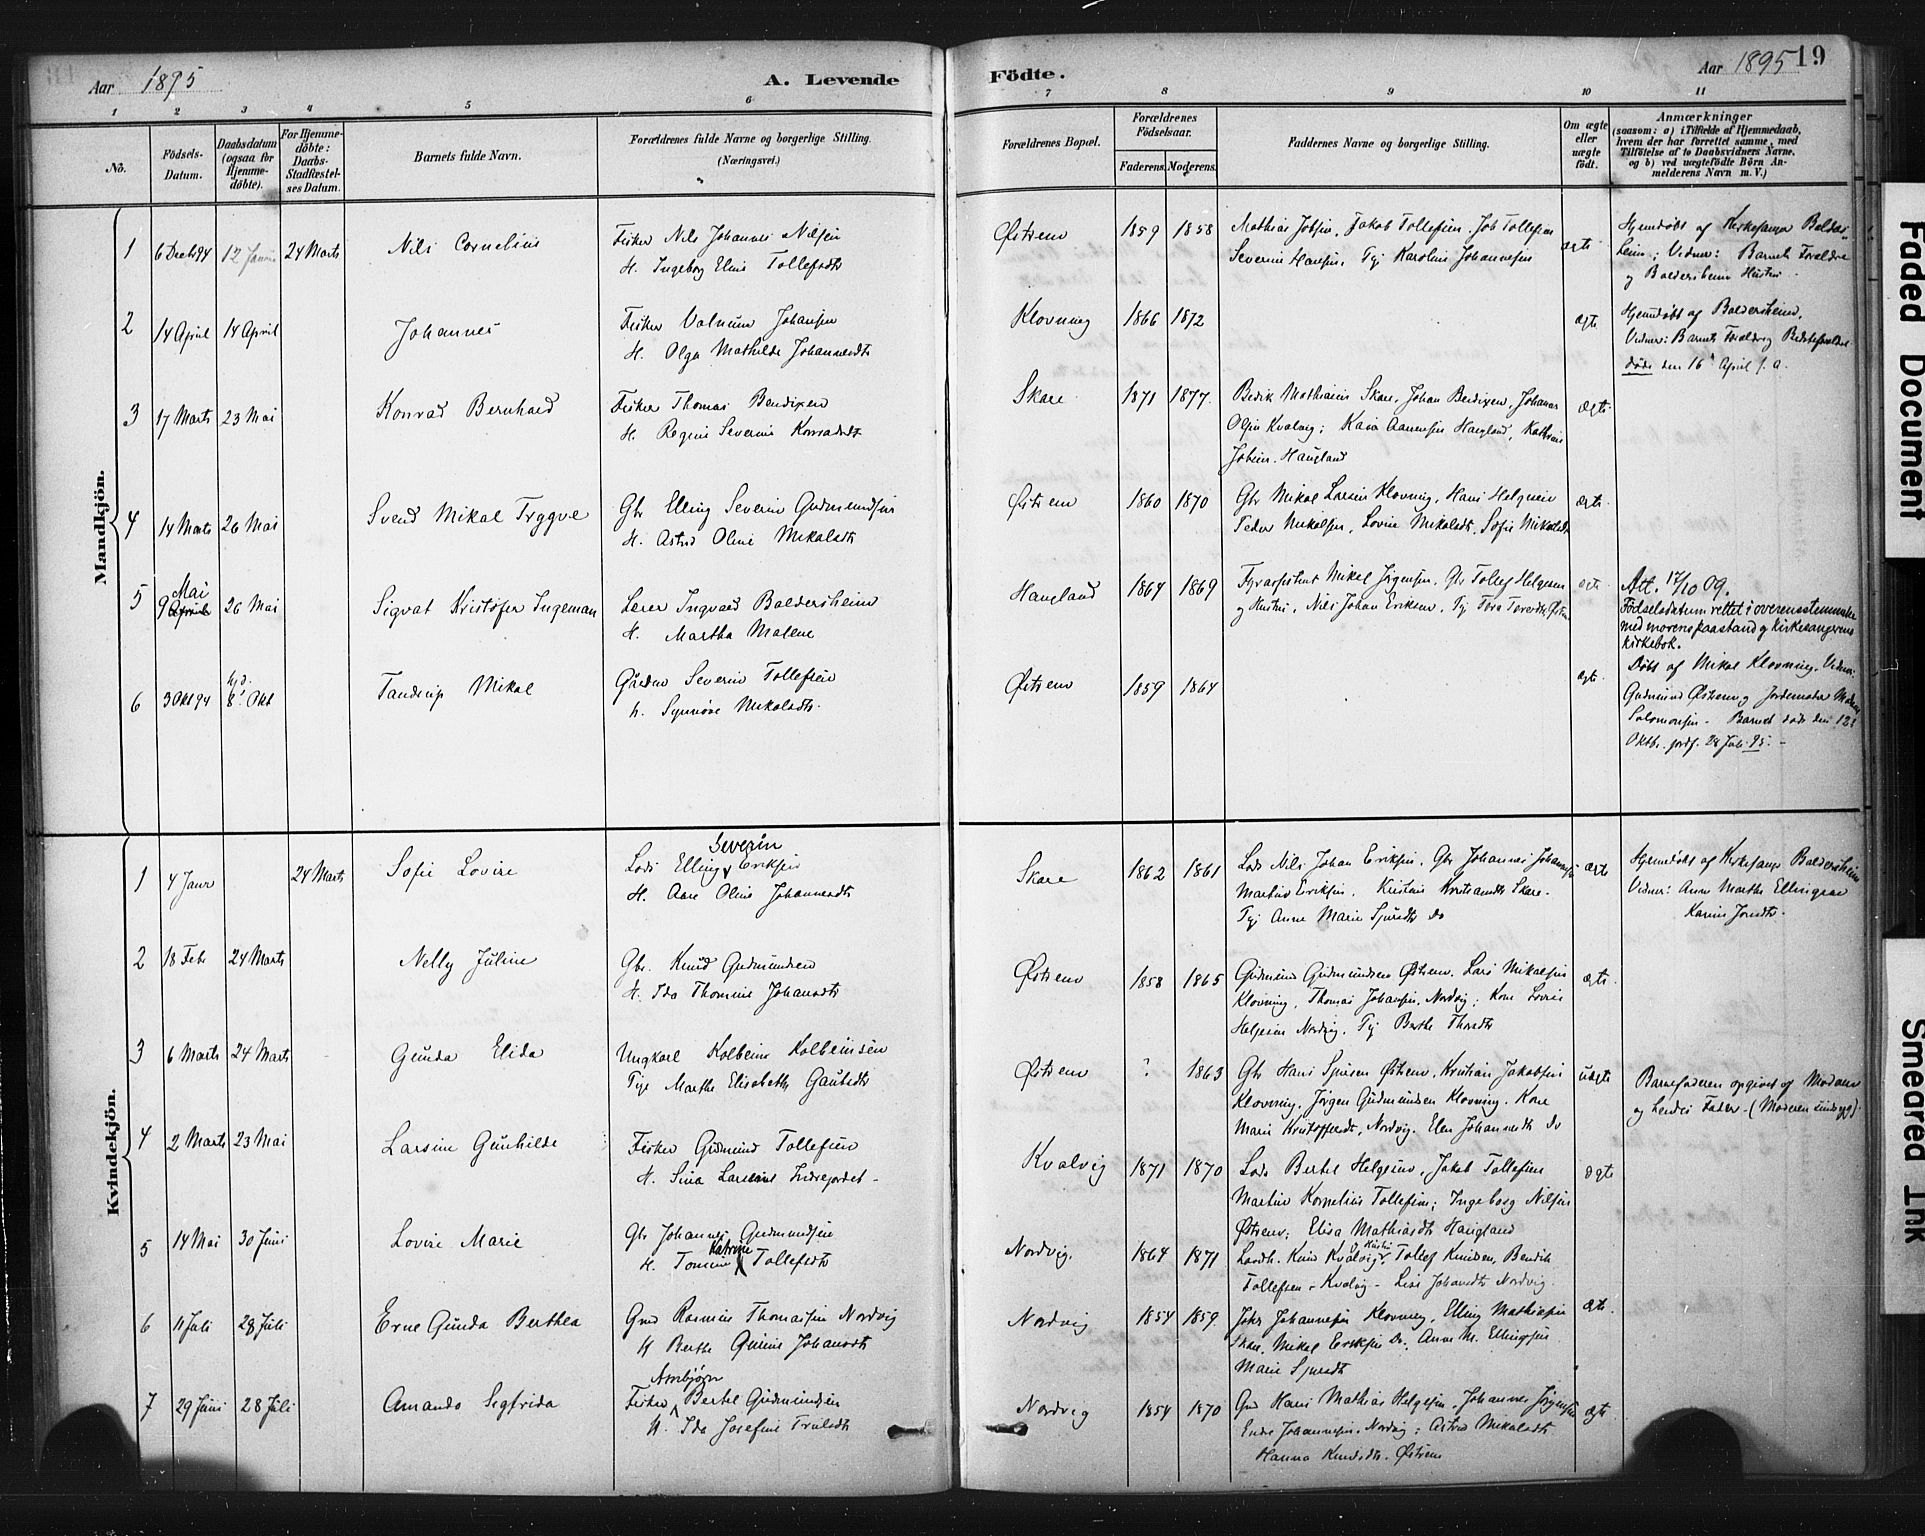 Aar 1895
A. Levende
Födte.
Aar 1895
19
1 2 3 4 5 6 7 8 9 10 11
No.
Födsels-
Datum.
Daabsdatum
(ogsaa for
Hjemme-
döbte).
For Hjemme-
döbte:
Daabs-
Stadfæstel-
ses Datum.
Barnets fulde Navn.
Forældrenes fulde Navne og borgerlige Stilling.
(Næringsvei.)
Forældrenes Bopæl.
Forældrenes
Födselsaar.
Faderens. Moderens.
Faddernes Navne og borgerlige Stilling.
Om ægte
eller
uægte
födt.
Anmærkninger
(saasom: a) i Tilfælde af Hjemmedaab,
hvem der har forrettet samme, med
Tilföielse af to Daabsvidners Navne,
og b) ved uægtefödte Börn An-
melderens Navn m. V.)
Mandkjön.
1 6 Decb 94 12 Januar 24 Marts Nils Cornelius
Fisker Nils Johannes Nilsen
H. Ingeborg Eline Tollefsdtr
Østrem 1859 1858
Mathias Jobsen, Jakob Tollefsen, Job Tollefsen
Severin Hansen, Pige Karoline Johannesen
ægte
Hjemdøbt af Kirkesanger Balders-
heim; Vidner: Barnets Forældre
og Baldersheims Hustru
2 14 April 14 April Johannes
Fisker Valnum Johansen
H. Olga Mathilde Johannesdtr
Klovning 1866 1872 ægte
Hjemdøbt af Baldersheim,
Vidner: Barnets Forældre og Bedsteforældre
døde den 16 April s. a.
3 17 Marts 23 Mai Konrad Bernhard
Fisker Thomas Bendixen
H. Regine Severine Konradsdtr
Skare 1871 1877
Bedik Mathiasen Skare, Johan Bendixen, Johannes
Olsen Kvalvig; Haugland, Kathrine
Jobsen Haugland
ægte
4 14 Marts 26 Mai Svend Mikal Tryggve
Gbr Elling Severin Gudmundsen
H. Astrid Oline Mikalsdtr
Østrem 1860 1870
Gbr Mikal Larsen Klovning, Hans Helgesen
Peder Mikalsen, Lovise Mikalsdtr, Sofie Mikalsdtr
ægte
5 9 Mai April 26 Mai Sigvat Kristofer Ingeman
Lærer Ingvard Baldersheim
H. Martha Malene
Haugland 1864 1869
Fyrassistent Mikal Jørgensen, Gbr Tollef Helgesen
og Hustru, Nils Johan Eriksen, Pige
ægte
Att. 17/10 09.
Födselsdatum rettet i overensstemmelse
med morens paastand og kirkesangerens
kirkebok.
6 3 Okt 94 8 Okt Tandrup Mikal
Gårdbr Severin Tollefsen
H. Synnøve Mikalsdtr
Østrem 1859 1864 ægte
Døbt af Mikal Klovning. Vidner:
Gudmund Østrem og Jordemoder
Salomonsen - Barnet døde den 12
Oktbr. 28 Juli 95.
Kvindekjön.
1 4 Janr 24 Marts Sofie Lovise
Severin
Lods Elling Eriksen
H. Ane Oline Johannesdtr
Skare 1862 1861
Lods Nils Johan Eriksen, Gbr Johannes Johannesen
Martin Eriksen, Kristine Kristiansdtr Skare.
Pige Anne Marie Sjursdtr Do
ægte
Hjemdøbt af Kirkesanger Baldersheim
Vidner: Anne Marthe Ellingsen
Karine
2 18 Febr 24 Marts Nelly Juline
Gbr. Knud Gudmundsen
H. Ida Thomine Johansdtr
Østrem 1858 1865
Gudmund Gudmundsen Østrem, Lars Mikalsen
Klovning, Thomas Johansen, Nordvig; Kone Lovise
Helgesen Nordvig. Pige Berthe
ægte
3 6 Marts 24 Marts Gunda Elida
Ungkarl Kolbein Kolbeinsen
Pige Marthe Elisabeth
Østrem ? 1863
Gbr Hans Østrem, Kristian Jakobsen
Klovning, Jørgen Gudmundsen Klovning. Kone
Marie Kristoffersdtr, Nordvig. Elen Johannesdtr Do
uægte
Barnefaderen opgivet af Moderen
og hendes Fader. (Moderen
4 2 Marts 23 Mai Larsine Gunhilde
Fisker Gudmund Tollefsen
H. Sina Larsine
Kvalvig 1871 1870
Lods Bertel Helgesen, Jakob Tollefsen
Martin Kornelius Tollefsen; Ingeborg Nilsen
Østrem; Elisa Mathiasdtr Haugland
ægte
5 14 Mai 30 Juni Lovise Marie
Gbr Johannes Gudmundsen
Katrine
H. Tomine Tollefsdtr
Nordvig. 1864 1871
Knud Kvalvig og Hustru, Tollef Knudsen, Bendik
Tollefsen, Kvalvig - Lise Johansdtr Nordvig.
6 11 Juli 28 Juli Erne Gunda Berthea
Gmd Rasmus Thomassen Nordvig
H Berthe Johansdtr
Nordvig 1854 1859
Johannessen Klovning, Elling Mathiasen
Skare, Mikal Eriksen Do, Anne M. Ellingsen
Marie Sjursdtr
ægte
7 29 Juni 28 Juli Amanda Segfrida
Arnbjørn
Fisker Bertel Gudmundsen
H. Ida Josefine
Nordvig 1854 1870
Gmd Hans Mathias Helgesen, Johannes Jørgensen
Endre Johannesen, Nordvig; Astrid Mikalsdtr
Hanna Knudsdtr. Østrem
ægte
Faded Document
Smeared Ink